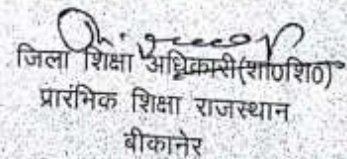 जिला शिक्षा अधिकारी(शा0शि0)
प्रारंभिक शिक्षा राजस्थान
बीकानेर